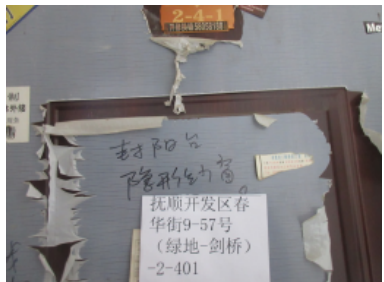 2-4-1
封阳台
隐形纱窗。
抚顺开发区春
华街9-57号
(绿地-剑桥)
-2-401